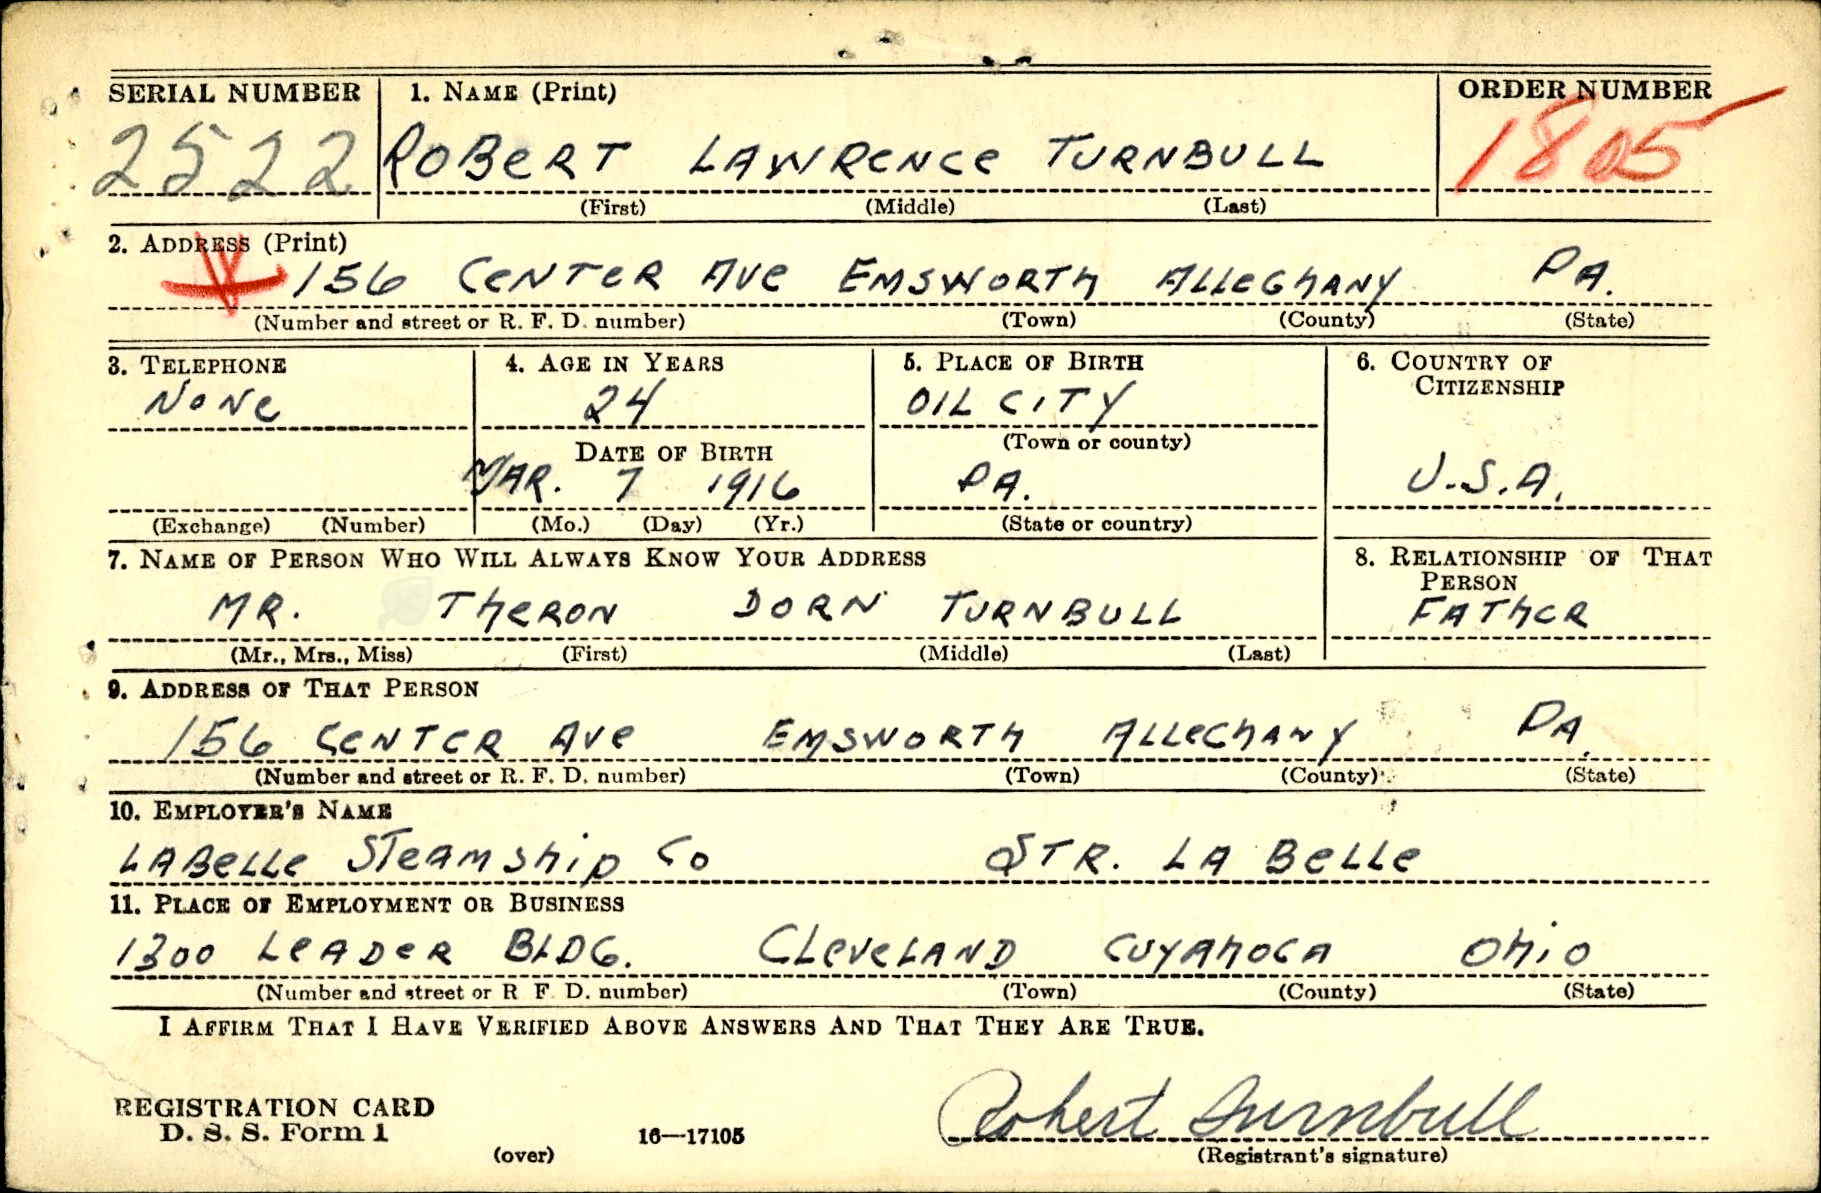 SERIAL NUMBER 1. NAME (Print) ORDER NUMBER
2522 ROBERT LAWRENCE TURNBULL 1805
(First) (Middle) (Last)
2. ADDRESS (Print)
156 CENTER AVE EMSWORTH ALLEGHANY PA.
(Number and street or R. F. D. number) (Town) (County) (State)
3. TELEPHONE 4. AGE IN YEARS 5. PLACE OF BIRTH 6. COUNTRY OF
CITIZENSHIP
NONE 24 OIL CITY
DATE OF BIRTH (Town or county)
MAR. 7 1916 PA. U.S.A.
(Exchange) (Number) (Mo.) (Day) (Yr.) (State or country)
7. NAME OF PERSON WHO WILL ALWAYS KNOW YOUR ADDRESS 8. RELATIONSHIP OF THAT
PERSON
MR. THERON DORN TURNBULL FATHER
(Mr., Mrs., Miss) (First) (Middle) (Last)
9. ADDRESS OF THAT PERSON
156 CENTER AVE EMSWORTH ALLEGHANY PA.
(Number and street or R. F. D. number) (Town) (County) (State)
10. EMPLOYER'S NAME
LABELLE STEAMSHIP CO STR. LA BELLE
11. PLACE OF EMPLOYMENT OR BUSINESS
1300 LEADER BLDG. CLEVELAND CUYAHOGA OHIO
(Number and street or R F. D. number) (Town) (County) (State)
I AFFIRM THAT I HAVE VERIFIED ABOVE ANSWERS AND THAT THEY ARE TRUE.
REGISTRATION CARD
D. S. S. Form 1 16—17105 Robert Turnbull
(over) (Registrant's signature)